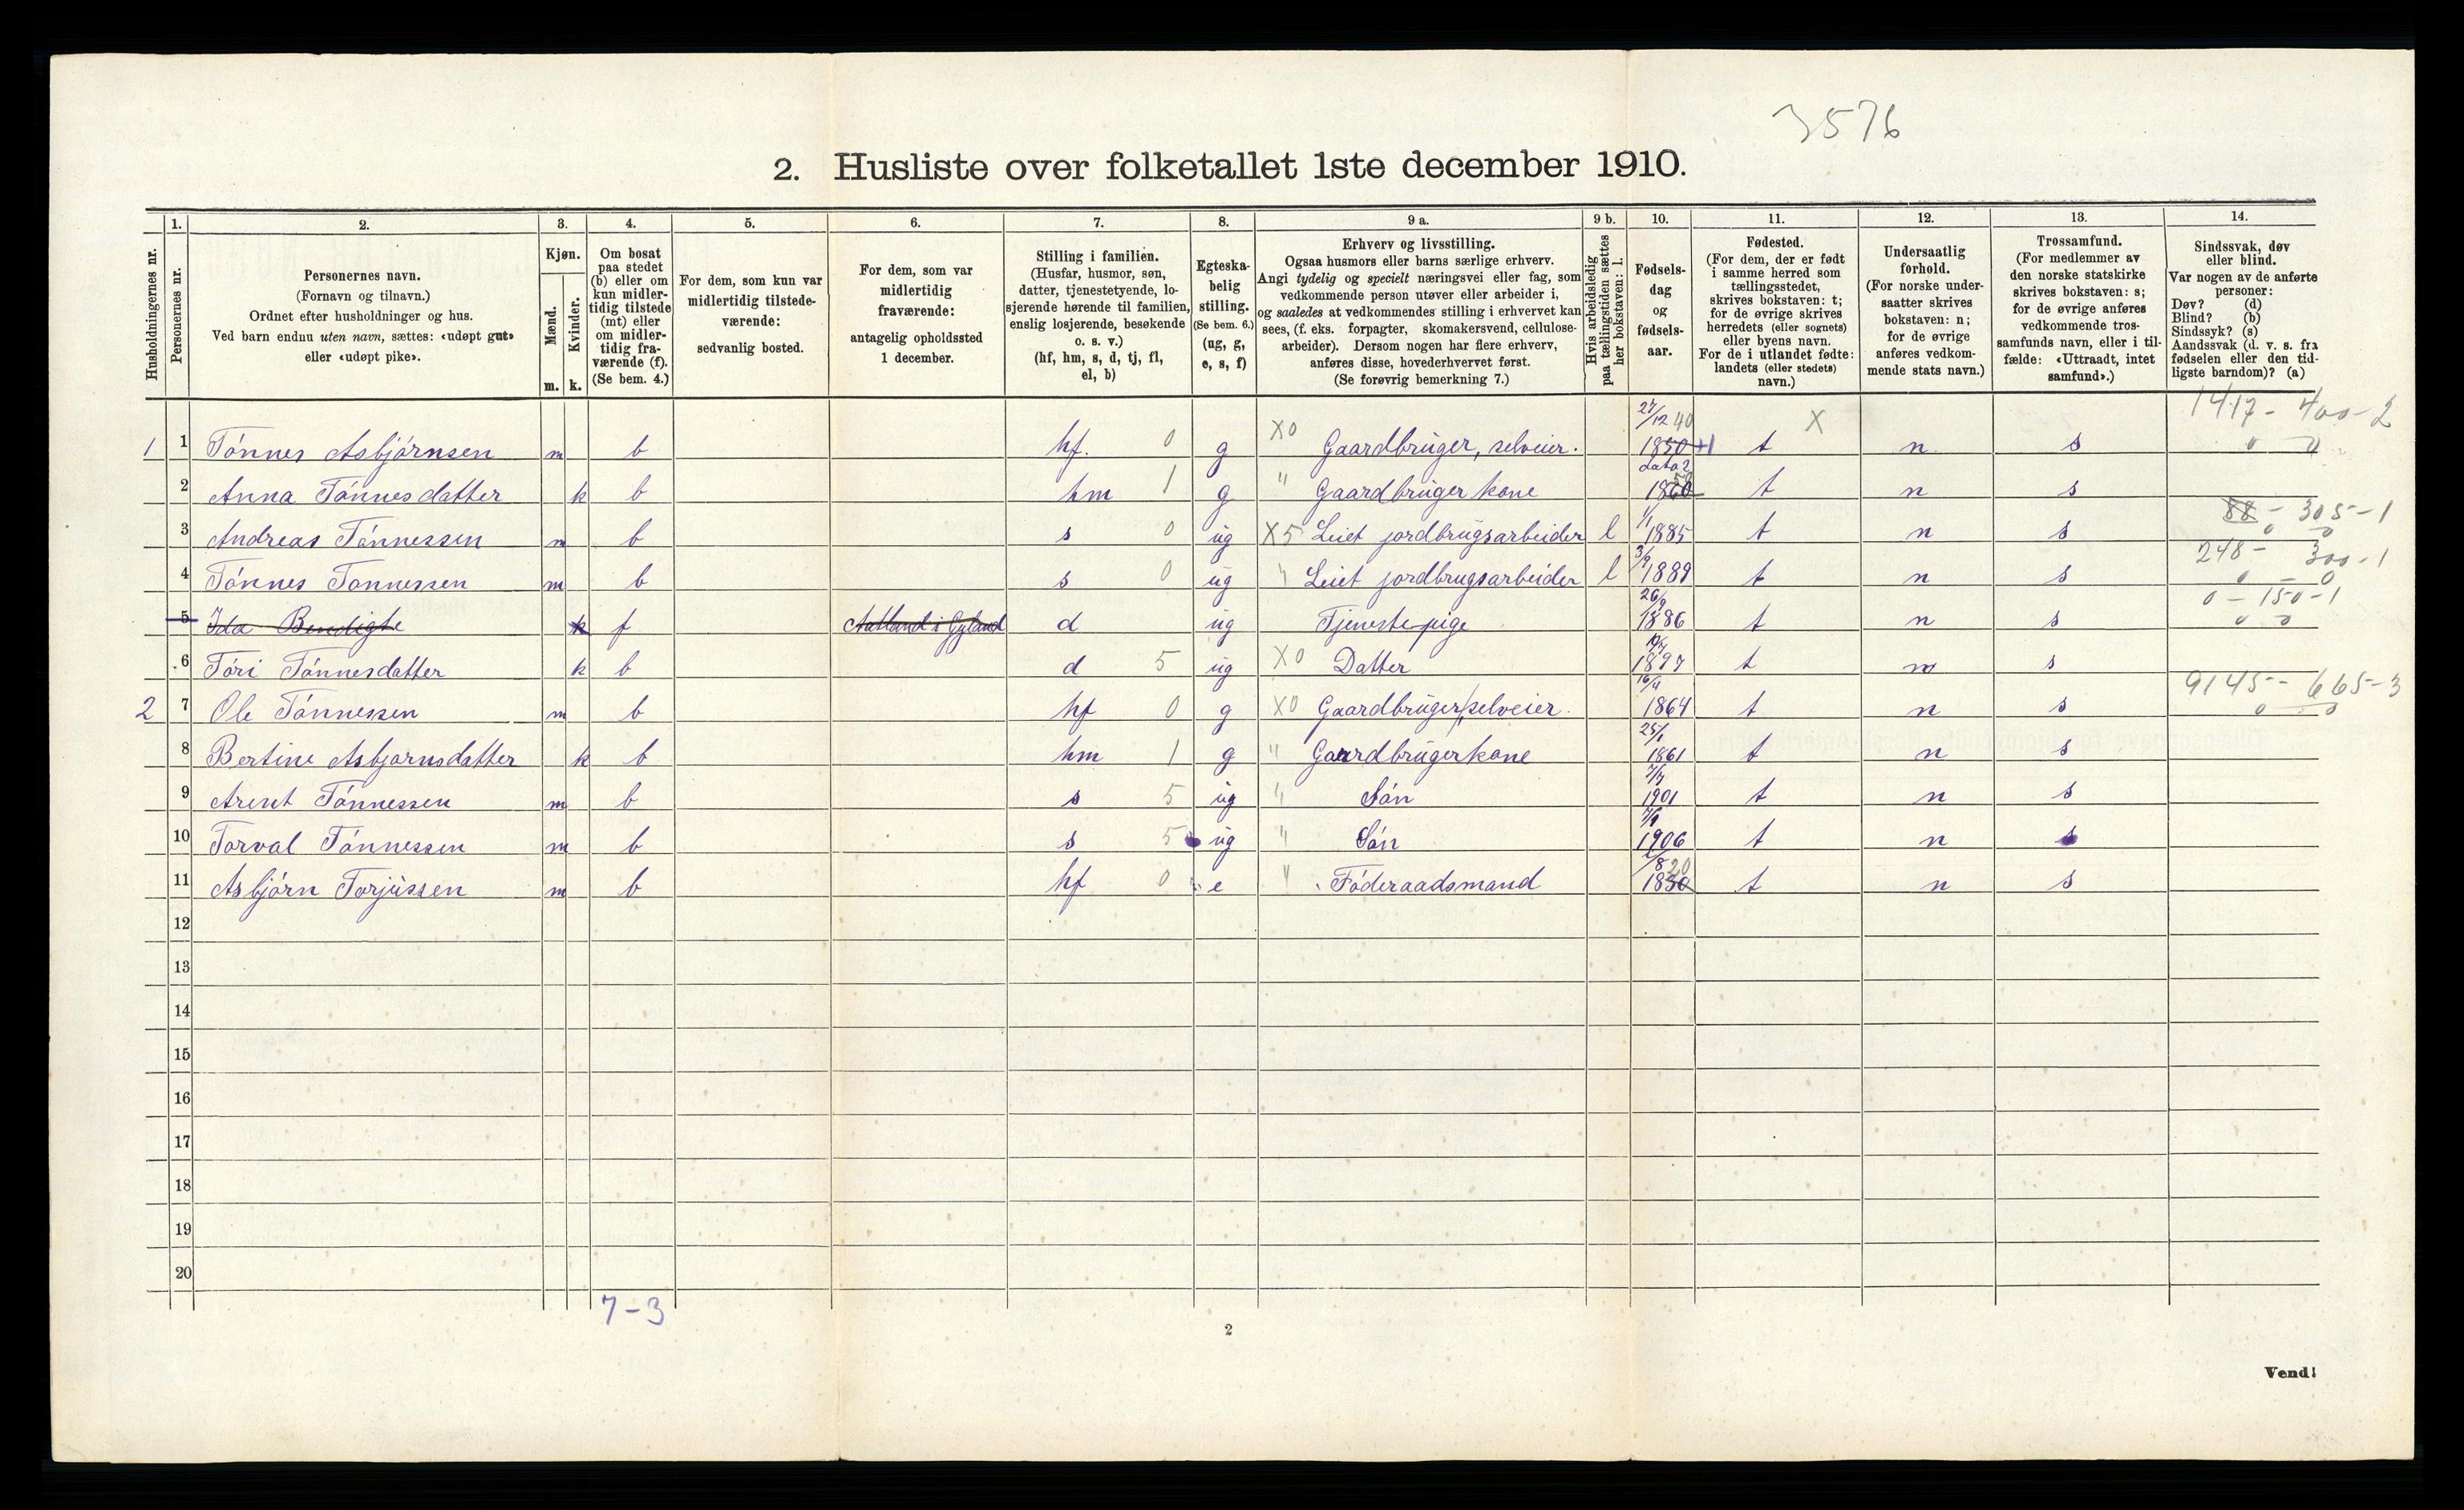 3576
2. Husliste over folketallet 1ste december 1910.
Husholdningernes nr.
1. Personernes nr.
2. Personernes navn. (Fornavn og tilnavn.) Ordnet efter husholdninger og hus. Ved barn endnu uten navn, sættes: «udøpt gut» eller «udøpt pike».
3. Kjøn. Mænd. m. Kvinder. k.
4. Om bosat paa stedet (b) eller om kun midler-tidig tilstede (mt) eller om midler-tidig fra-værende (f). (Se bem. 4.)
5. For dem, som kun var midlertidig tilstede-værende: sedvanlig bosted.
6. For dem, som var midlertidig fraværende: antagelig opholdssted 1 december.
7. Stilling i familien. (Husfar, husmor, søn, datter, tjenestetyende, lo-sjerende hørende til familien, enslig losjerende, besøkende o. s. v.) (hf, hm, s, d, tj, fl, el, b)
8. Egteska-belig stilling. (Se bem. 6.) (ug, g, e, s, f)
9 a. Erhverv og livsstilling. Ogsaa husmors eller barns særlige erhverv. Angi tydelig og specielt næringsvei eller fag, som vedkommende person utøver eller arbeider i, og saaledes at vedkommendes stilling i erhvervet kan sees, (f. eks. forpagter, skomakersvend, cellulose-arbeider). Dersom nogen har flere erhverv, anføres disse, hovederhvervet først. (Se forøvrig bemerkning 7.)
9 b. Hvis arbeidsledig paa tællingstiden sættes her bokstaven: l.
10. Fødsels-dag og fødsels-aar.
11. Fødested. (For dem, der er født i samme herred som tællingsstedet, skrives bokstaven: t; for de øvrige skrives herredets (eller sognets) eller byens navn. For de i utlandet fødte: landets (eller stedets) navn.)
12. Undersaatlig forhold. (For norske under-saatter skrives bokstaven: n; for de øvrige anføres vedkom-mende stats navn.)
13. Trossamfund. (For medlemmer av den norske statskirke skrives bokstaven: s; for de øvrige anføres vedkommende tros-samfunds navn, eller i til-fælde: «Uttraadt, intet samfund».)
14. Sindssvak, døv eller blind. Var nogen av de anførte personer: Døv? (d) Blind? (b) Sindssyk? (s) Aandssvak (d. v. s. fra fødselen eller den tid-ligste barndom)? (a)
1 1 Tónnes Asbjórnsen m b hf. 0 g X0 Gaardbrúger, selveier. 27/12 40 1850 +1 t X n s 1417 - 400 - 2 0 0
2 Anna Tónnesdatter k b hm 1 g " Gaardbrúger kone 1860 t n s
3 Andreas Tónnessen m b s 0 úg X5 Leiet jordbrúgsarbeider l 1/1 1885 t n s 88 - 305 - 1 0 0
4 Tónnes Tonnessen m b s 0 úg " Leiet jordbrugsarbeider l 3/9 1889 t n s 248 - 300 - 1 0 - 0
5 Ida Bendigte k f Aatland i Gyland d úg Tjenestepige 26/9 1886 t n s 0 - 150 - 1 0 0
6 Tóri Tónnesdatter k b d 5 úg X0 Datter 1897 t n s
2 7 Ole Tónnessen m b hf 0 g X0 Gaardbrúger, selveier. 16/4 1864 t n s 9145 - 665 - 3 0 0
8 Bertine Asbjornsdatter k b hm 1 g " Gaardbrúgerkone 25/1 1861 t n s
9 Arent Tónnessen m b s 5 úg " Són 1901 t n s
10 Torval Tónnessen m b s 5 úg " Són 1906 t n s
11 Asbjórn Torjússen m b hf 0 e " Fóderaadsmand 20 1830 t n s
12
13
14
15
16
17
18
19
20
7 - 3
2
Vend!